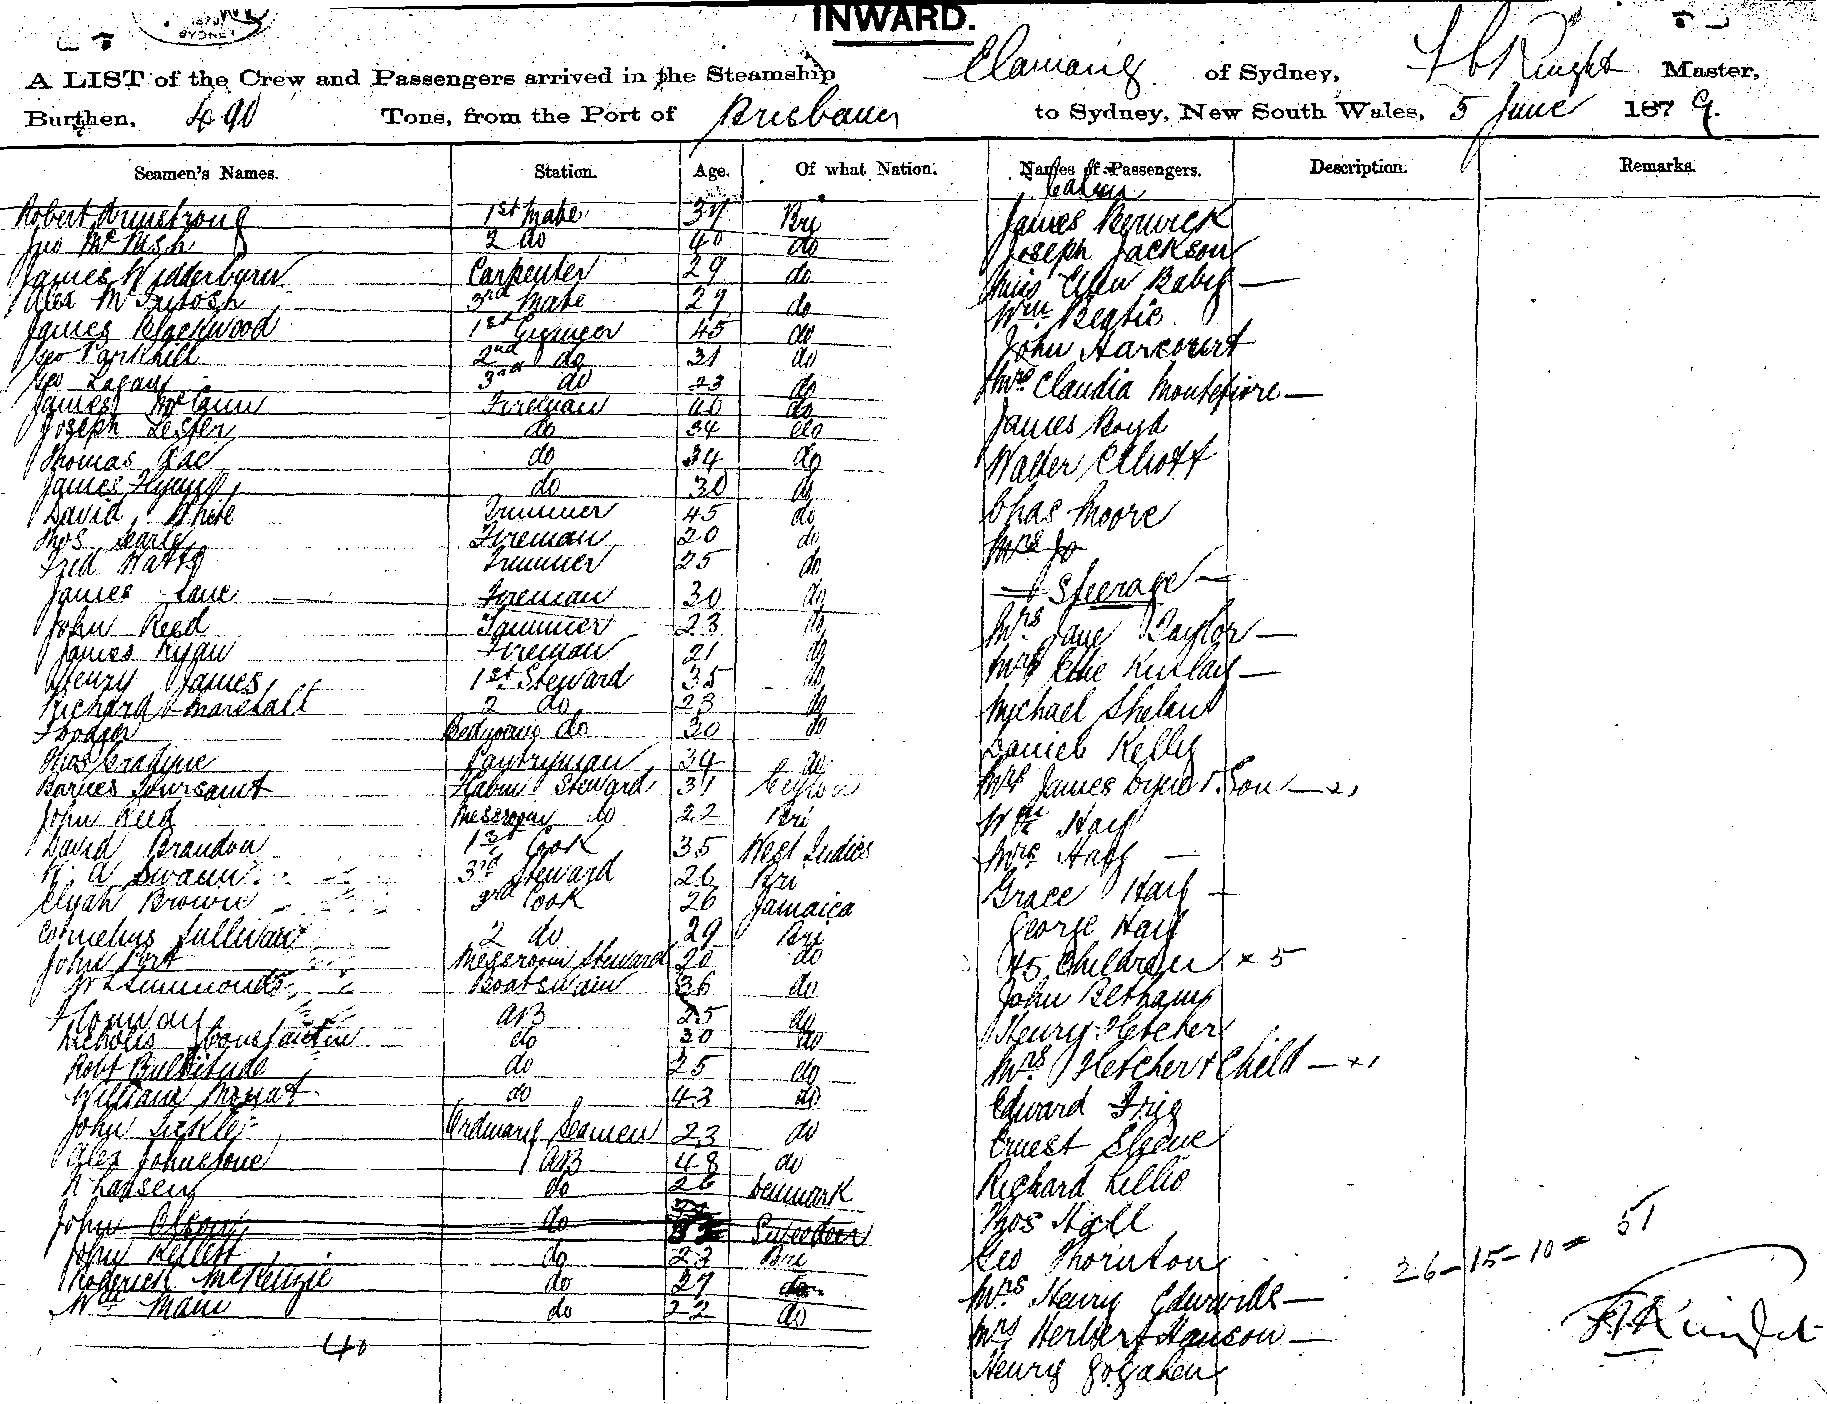 SYDNEY
INWARD.
A LIST of the Crew and Passengers arrived in the Steamship of Sydney, Master,
Burthen, 490 Tons, from the Port of Brisbane to Sydney, New South Wales, 5 June 1879.
Seamen's Names. Station. Age. Of what Nation. Names of Passengers. Description. Remarks.
Cabin
Robert Armstrong 1st Mate 37 Bri James Berwick
Jno 2 do 40 do Joseph Jackson
James Wedderburn Carpenter 29 do Miss Ellen —
Alex McIntosh 3rd Mate 29 do Wm Beatie
James Blackwood 1st Engineer 45 do John Harcourt
Geo Parkhill 2nd do 31 do
Geo Logan 3rd do 23 do Mrs Claudia Montefiore —
James McCann Fireman 40 do
Joseph Lester do 34 do James Boyd
Thomas Rae do 34 do Walter Elliott
James Flynn do 30 do
David White Trimmer 45 do Chas Moore
Thos Searle Fireman 20 do Mrs Jo
Fred Watts Trimmer 25 do
James Lane Fireman 30 do — Steerage —
John Reed Trimmer 23 do Mrs Jane Taylor —
James Ryan Fireman 21 do
Henry James 1st Steward 35 do Mrs Effie Kinlay —
Richard Marshall 2 do 23 do Michael Shelan
do 30 do
Thos Pantryman 34 do Daniel Kelly
Barnes Toursaint Steward 31 Ceylon Mrs James & Son — x 1
John Reed Messroom do 22 Bri Wm Hay
David Brandon 1st Cook 35 West Indies Mrs Hay —
W. A Swann 3rd Steward 26 Bri
Elijah Brown 3rd Cook 26 Jamaica Grace Hay —
Cornelius Sullivan 2 do 29 Bri George Hay
John Port Messroom Steward 20 do 5 Children x 5
W Simmonds Boatswain 36 do John
Conway AB 25 do Henry Fletcher
Nicholis Constantin do 30 do
Robt Bultitude do 25 do Mrs Fletcher & Child — x 1
William Mowat do 42 do Edward
John Ordinary Seamen 23 do Ernest
Alex Johnstone AB 48 do
do 26 Denmark Richard Lillie
John Olson do Sweeden Thos Hall
John Kellett do 23 Bri Geo Thornton
Roderick McKenzie do 27 do Mrs Henry Edwards —
Wm Main do 22 do Mrs Herbert Hanson —
40 Henry
26 - 15 - 10 = 51